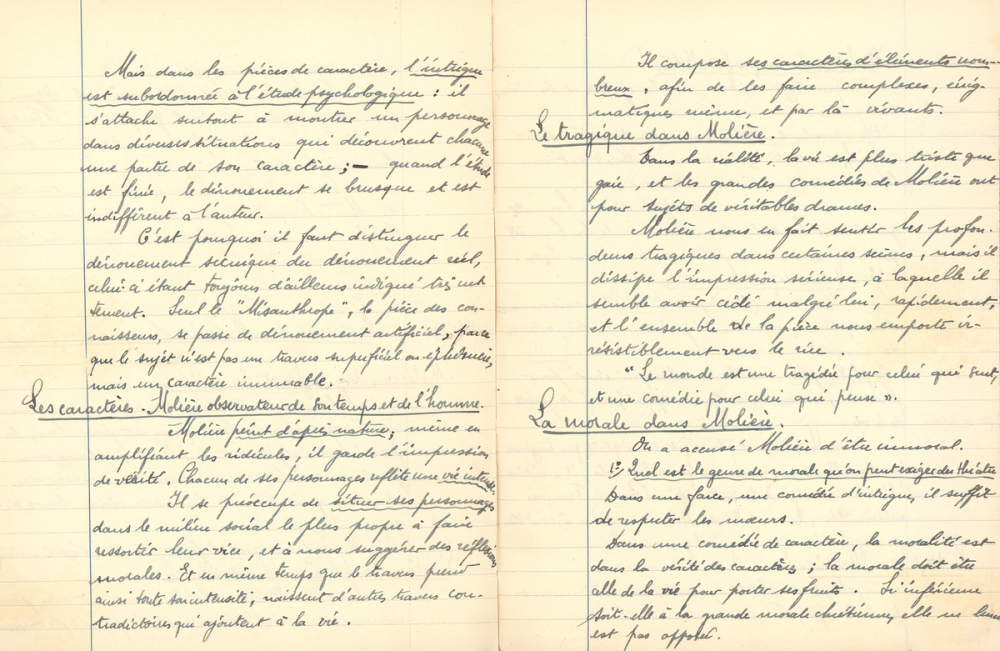 Mais dans les pièces de caractère, l'intrigue
est subordonnée à l'étude psychologique : il
s'attache surtout à montrer un personnage
dans diverses situations qui découvrent chacune
une partie de son caractère ; — quand l'étude
est finie, le dénouement se brusque et est
indifférent à l'auteur.
C'est pourquoi il faut distinguer le
dénouement scénique du dénouement réel,
celui-ci étant toujours d'ailleurs indiqué très net
tement. Seul le "Misanthrope", la pièce des con-
naisseurs, se passe de dénouement artificiel, parce
que le sujet n'est pas un travers superficiel ou éphémère,
mais un caractère immuable.
Les caractères. Molière observateur de son temps et de l'homme.
Molière peint d'après nature ; même en
amplifiant les ridicules, il garde l'impression
de vérité. Chacun de ses personnages reflète une vie intense.
Il se préoccupe de situer ses personnages
dans le milieu social le plus propre à faire
ressortir leur vice, et à nous suggérer des réflexions
morales. Et en même temps que le travers prend
ainsi toute son intensité, naissent d'autres travers con-
tradictoires qui ajoutent à la vie.
Il compose ses caractères d'éléments nom-
breux, afin de les faire complexes, énig-
matiques même, et par là vivants.
Le tragique dans Molière.
Dans la réalité, la vie est plus triste que
gaie, et les grandes comédies de Molière ont
pour sujets de véritables drames.
Molière nous en fait sentir les profon-
deurs tragiques dans certaines scènes, mais il
dissipe l'impression sérieuse, à laquelle il
semble avoir cédé malgré lui, rapidement,
et l'ensemble de la pièce nous emporte ir-
résistiblement vers le rire.
"Le monde est une tragédie pour celui qui sent,
et une comédie pour celui qui pense".
La morale dans Molière.
On a accusé Molière d'être immoral.
1º Quel est le genre de morale qu'on peut exiger du théâtre
Dans une farce, une comédie d'intrigue, il suffit
de respecter les mœurs.
Dans une comédie de caractère, la moralité est
dans la vérité des caractères ; la morale doit être
celle de la vie pour porter ses fruits. Si inférieure
soit-elle à la grande morale chrétienne, elle ne leur
est pas opposée.